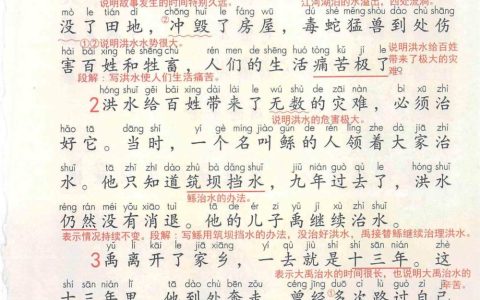 说明故事发生的时间特别久远。 江河湖泊的水溢出,四处流淌。
méi le tián dì chōng huǐ le fáng wū dú shé měng shòu dào chù shāng
没了田地,冲毁了房屋,毒蛇猛兽到处伤
①②说明洪水水势很大。
hài bǎi xìng hé shēng chù rén men de shēng huó tòng kǔ jí le
害百姓和牲畜,人们的生活痛苦极了
说明洪水给百姓带来了极大的灾难。
段解:写洪水使人们生活痛苦。
hóng shuǐ gěi bǎi xìng dài lái le wú shù de zāi nàn bì xū zhì
2洪水给百姓带来了无数的灾难,必须治
说明洪水的危害极大。
hǎo tā dāng shí yí gè míng jiào gǔn de rén lǐng zhe dà jiā zhì
好它。当时,一个名叫鲧的人领着大家治
shuǐ tā zhǐ zhī dào zhù bà dǎng shuǐ jiǔ nián guò qù le hóng shuǐ
水。他只知道筑坝挡水,九年过去了,洪水
鲧治水的办法。
réng rán méi yǒu xiāo tuì tā de ér zi yǔ jì xù zhì shuǐ
仍然没有消退。他的儿子禹继续治水。
表示情况持续不变。段解:写鲧用筑坝挡水的办法,没治好洪水,禹接替鲧继续治理洪水。
yǔ lí kāi le jiā xiāng yí qù jiù shì shí sān nián zhè
3禹离开了家乡,一去就是十三年。这
表示大禹治水的时间很长,也说明大禹治水的辛苦。
shí sān nián lǐ tā dào chù bēn zǒu céng jīng
十三年里,他到处奔走,